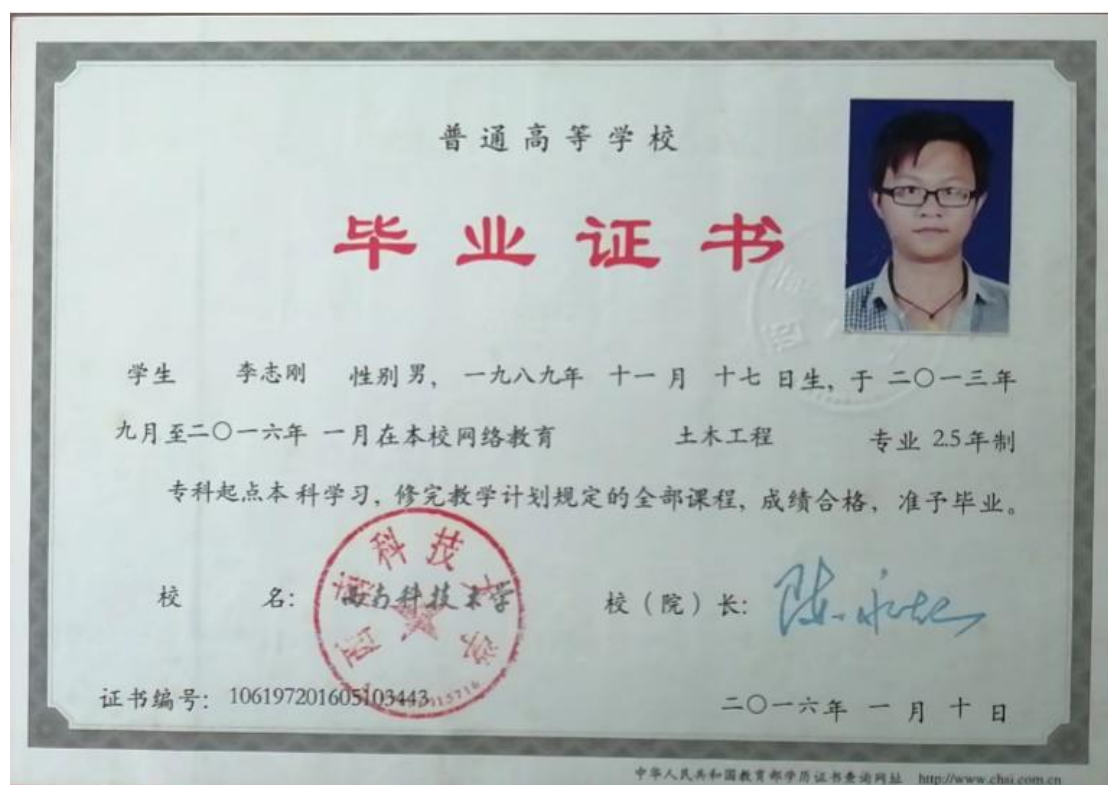 普通高等学校
毕业证书
学生 李志刚 性别 男, 一九八九年 十一月 十七 日生, 于 二〇一三年
九月至二〇一六年 一月在本校网络教育 土木工程 专业 2.5年制
专科起点本科学习, 修完教学计划规定的全部课程, 成绩合格, 准予毕业。
校 名: 西南科技大学 校(院)长:
西南科技大学
证书编号: 106197201605103443 二〇一六年 一月 十日
中华人民共和国教育部学历证书查询网址 http://www.chsi.com.cn